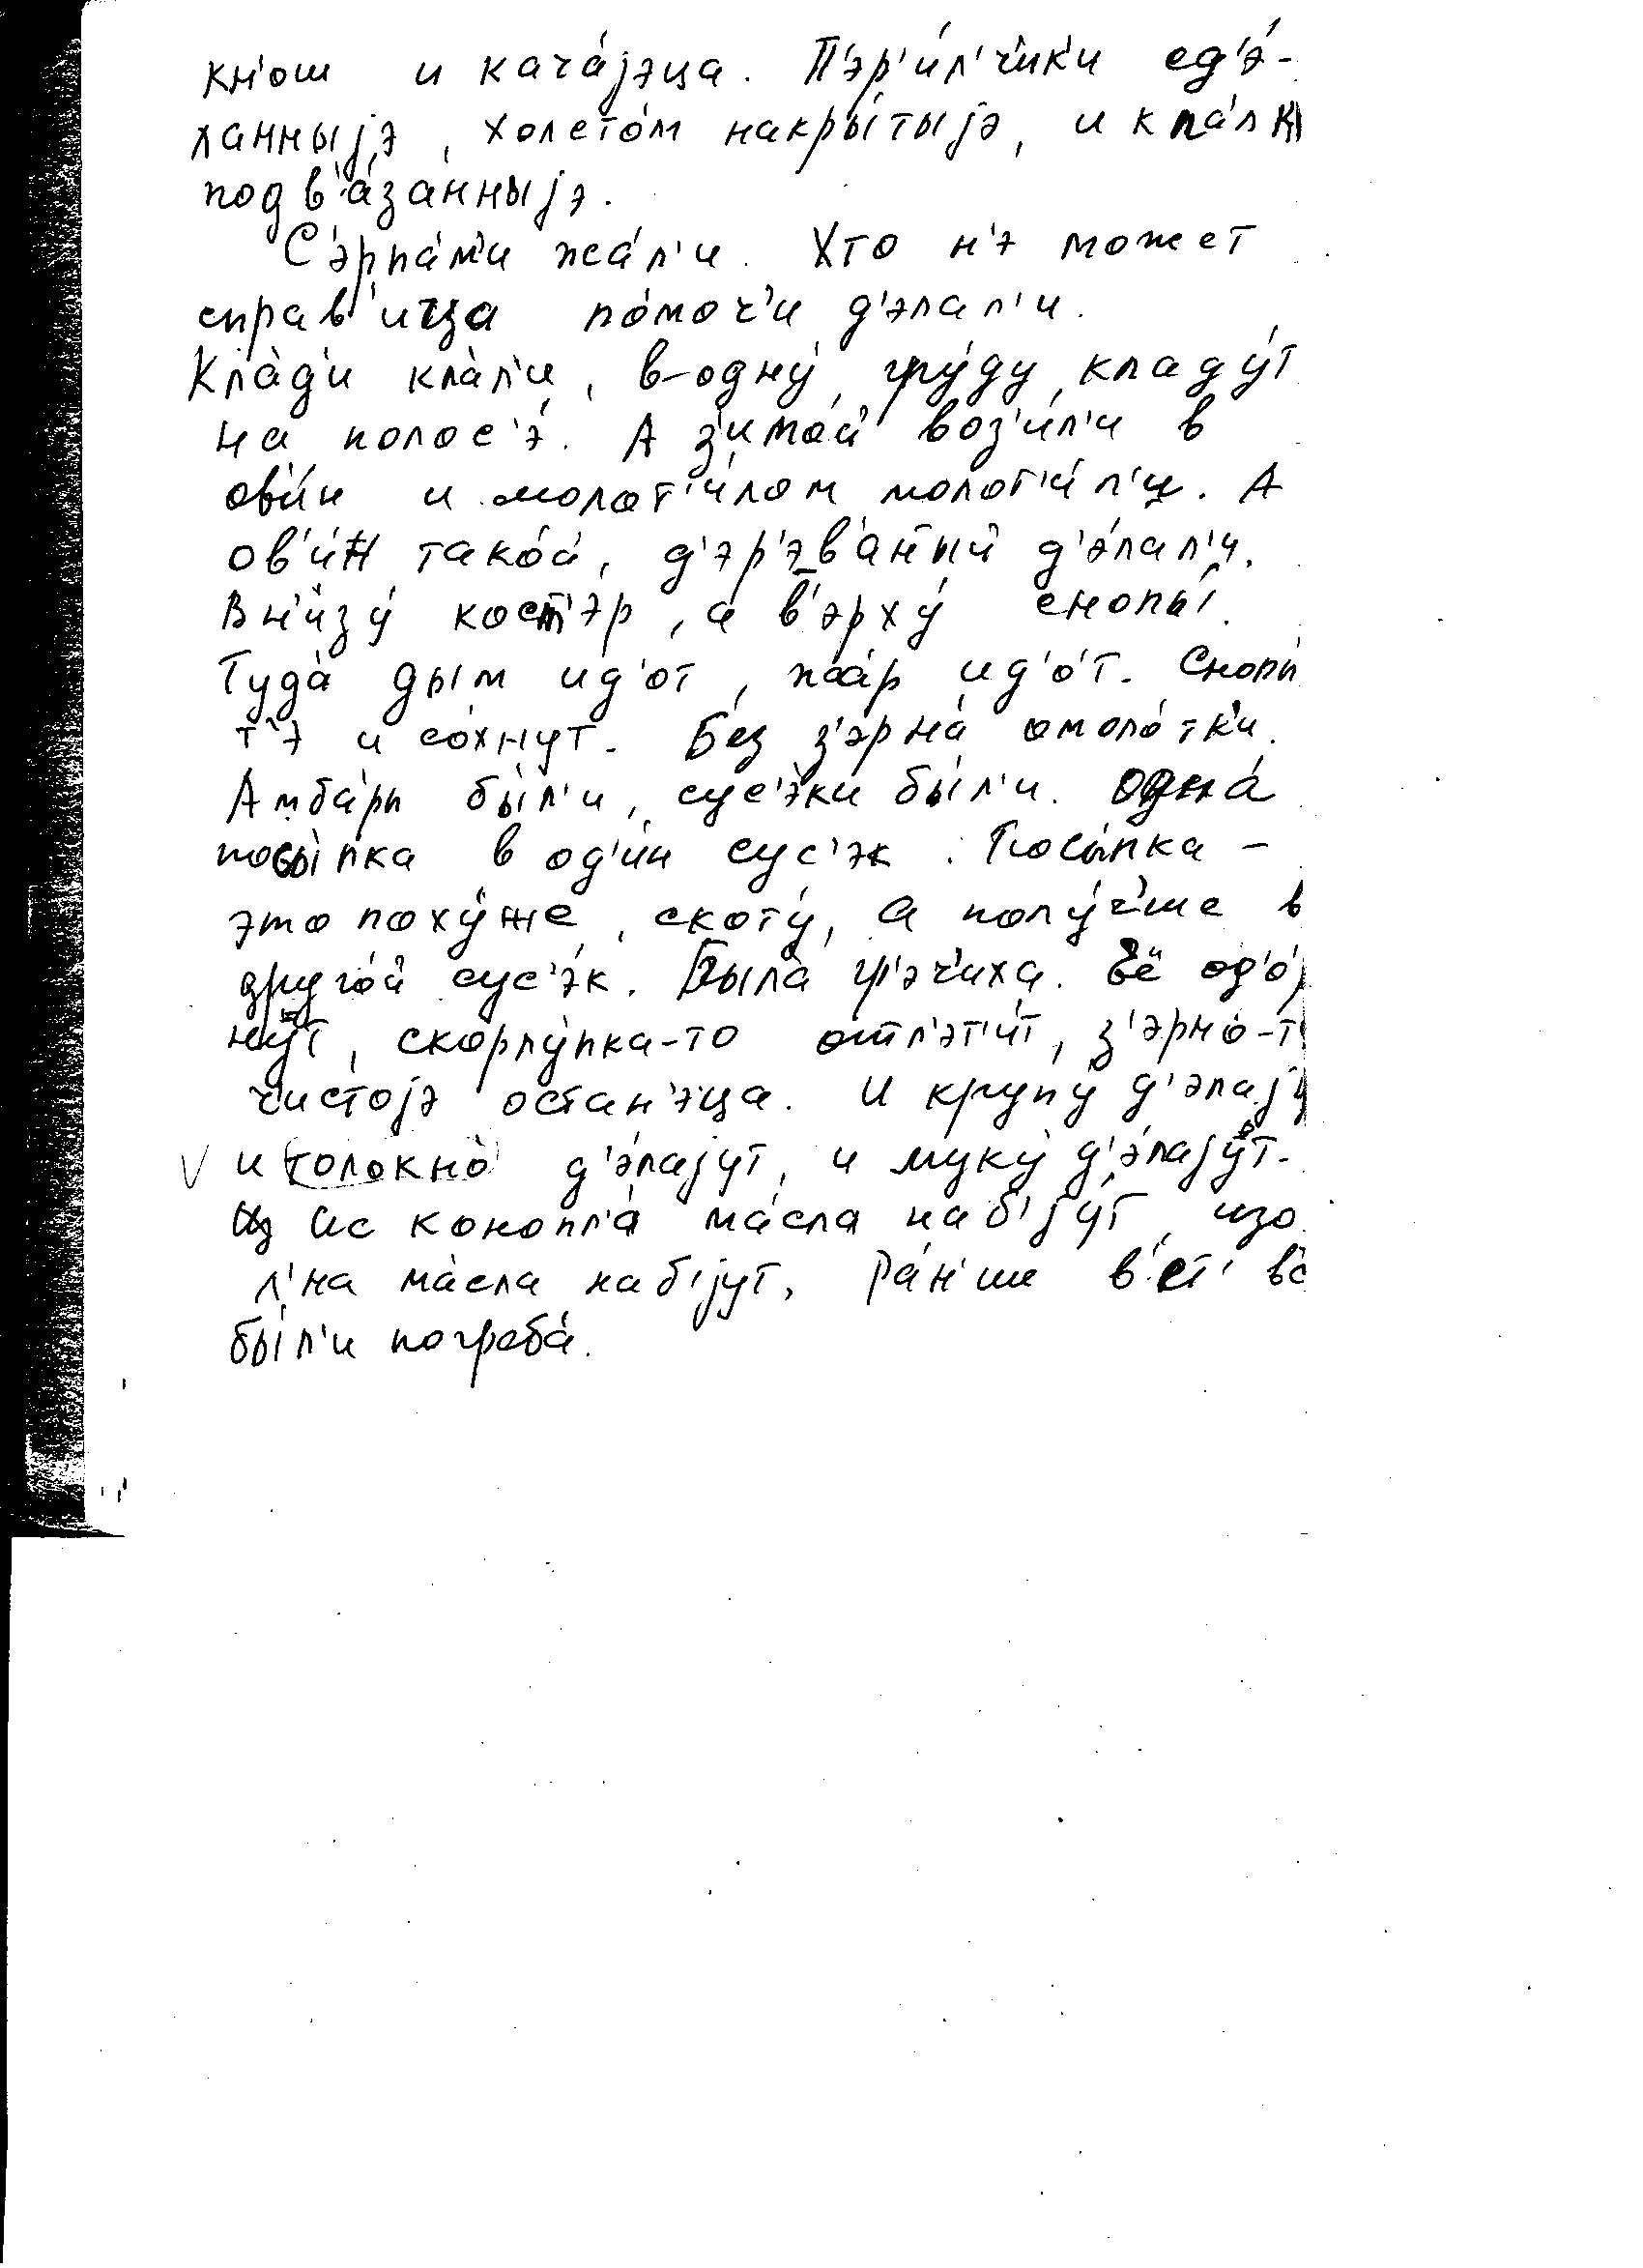 кн'ош и кача́jэца. П'эр'и́л'ч'ик'и сд'э́-
ланныjэ, холсто́м накры́тыjэ, и к па́лк
подв'а́занныjэ.
С'эрпа́м'и жа́л'и. Хто н'э может
справ'ица по́моч'и д'элал'и.
Кла́д'и кла́л'и, в одну́ гру́ду кладу́т
на полос'э́. А з'имо́й воз'и́л'и в
ов'и́н и молот'и́лом молот'и́л'и. А
ов'и́н тако́й, д'эр'эв'а́ный д'э́лал'и.
Вн'изу́ кост'эр, а в'эрху́ снопы́.
Туда́ дым ид'от, жар ид'о́т. Снопы́
т'э и со́хнут. Без з'эрна́ омоло́тк'и.
Амба́ры бы́л'и, сус'э́ки бы́л'и. Одна́
посы́пка в од'и́н сус'эк. Посы́пка –
это поху́же, скоту́, а полу́ч'ше в
друго́й сус'э́к. Была́ гр'эч'иха. Её од'о́р
ну́т, скорлу́пка-то отл'эт'и́т, з'эрно́-т
ч'истоjэ остан'эца. И крупу́ д'элаjу
и толокно́ д'э́лаjут, и муку́ д'э́лаjут.
Ис конопл'а́ ма́сла наб'jу́т, изо
л'на ма́сла наб'jут. Ра́н'ше в'ет' вс
бы́л'и погреба́.